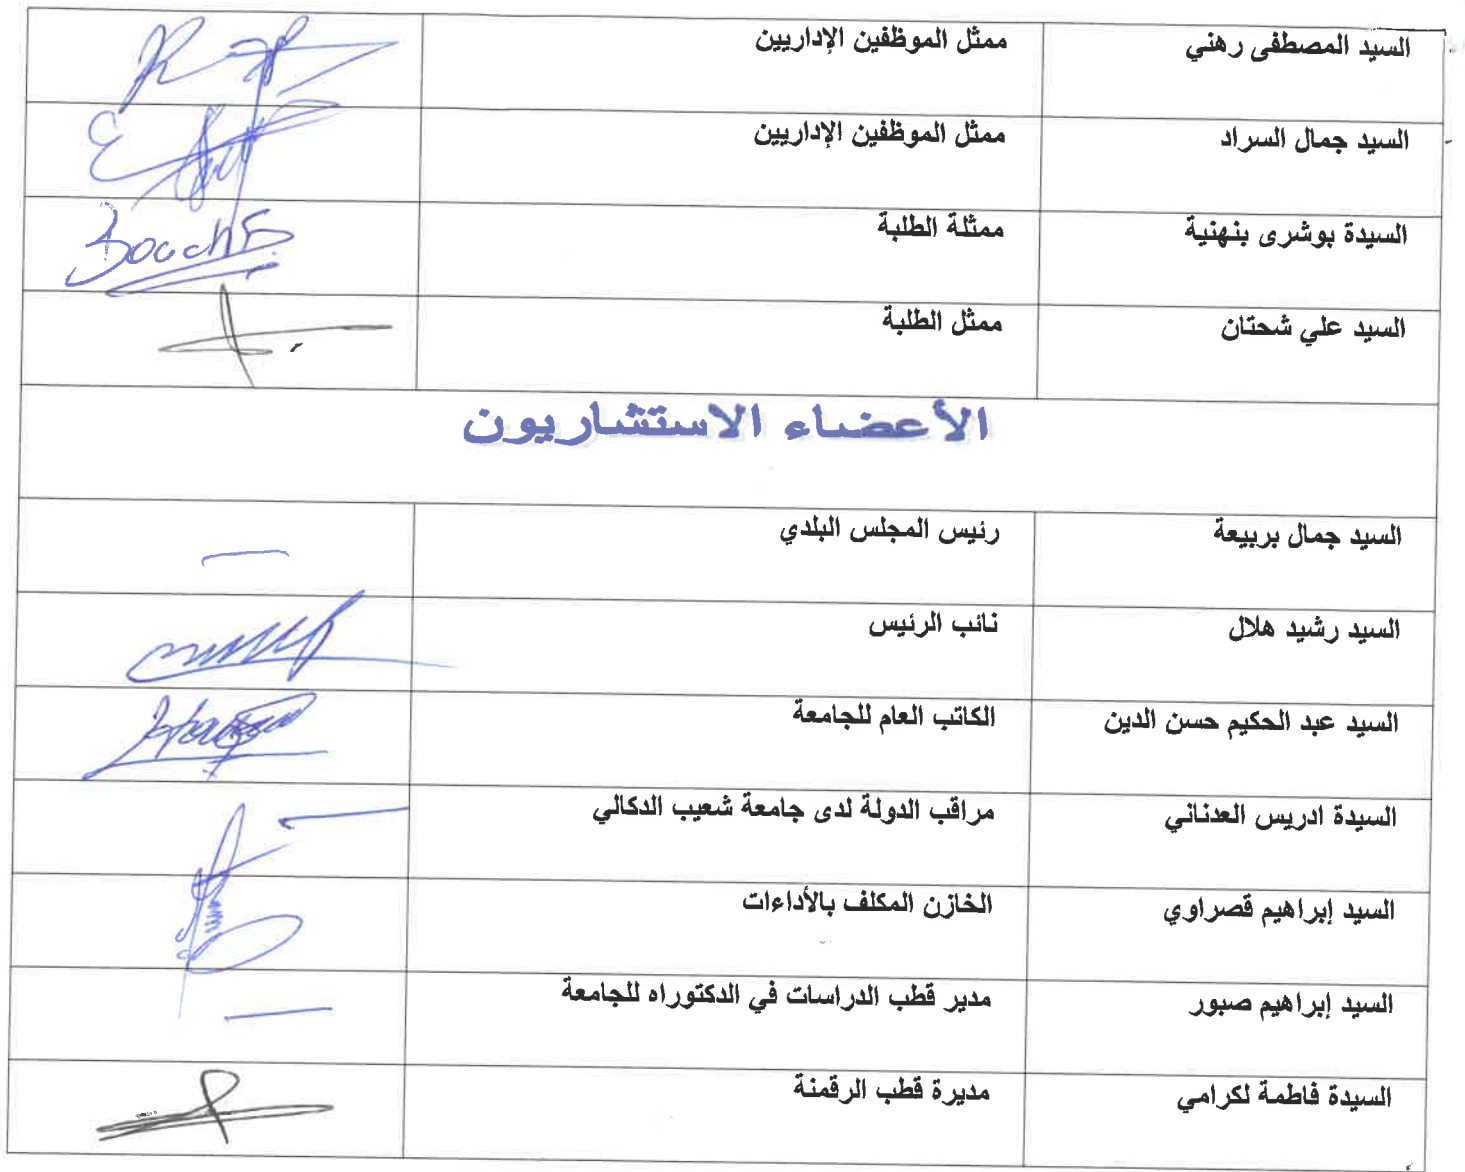 السيد المصطفى رهني ممثل الموظفين الإداريين
السيد جمال السراد ممثل الموظفين الإداريين
السيدة بوشرى بنهنية ممثلة الطلبة
السيد علي شحتان ممثل الطلبة
الأعضاء الاستشاريون
السيد جمال بربيعة رئيس المجلس البلدي
السيد رشيد هلال نائب الرئيس
السيد عبد الحكيم حسن الدين الكاتب العام للجامعة
السيدة ادريس العدناني مراقب الدولة لدى جامعة شعيب الدكالي
السيد إبراهيم قصراوي الخازن المكلف بالأداءات
السيد إبراهيم صبور مدير قطب الدراسات في الدكتوراه للجامعة
السيدة فاطمة لكرامي مديرة قطب الرقمنة